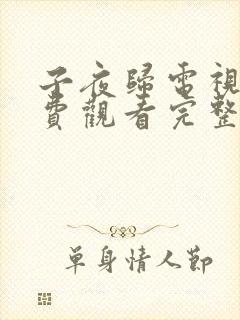 子夜歸電視
費觀看完整
單身情人節